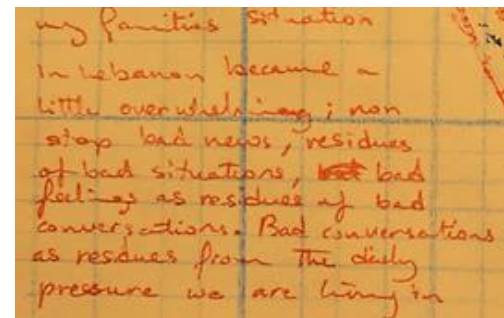 my families situation
In Lebanon became a
little overwhelming; non
stop bad news, residues
of bad situations, bad
feelings as residues of bad
conversations. Bad conversations
as residues from the daily
pressure we are living in